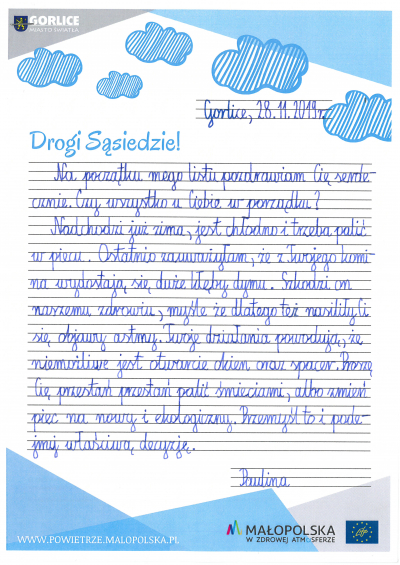 GORLICE
MIASTO ŚWIATŁA
Gorlice, 28.11.2019r.
Drogi Sąsiedzie!
Na początku mego listu pozdrawiam Cię serde-
cznie. Czy wszystko u Ciebie w porządku?
Nadchodzi już zima, jest chłodno i trzeba palić
w piecu. Ostatnio zauważyłam, że z Twojego komi-
na wydostają się duże kłęby dymu. Szkodzi on
naszemu zdrowiu, myślę że dlatego też nasiliły Ci
się objawy astmy. Twoje działania powodują, że
niemożliwe jest otwarcie okien oraz spacer. Proszę
Cię przestań przestań palić śmieciami, albo zmień
piec na nowy i ekologiczny. Przemyśl to i pode-
jmij właściwą decyzję.
Paulina
WWW.POWIETRZE.MALOPOLSKA.PL
MAŁOPOLSKA
W ZDROWEJ ATMOSFERZE